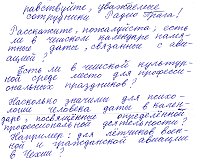 равствуйте, уважаемые
сотрудники Радио Прага!
Расскажите, пожалуйста, есть
ли в чешском календаре памят-
ные даты, связанные с ави-
ацией?
Есть ли в чешской культур-
ной среде место для професси-
ональных праздников?
Насколько значимы для психо-
логии человека даты в кален-
даре, посвящённые определённой
профессиональной деятельности?
Например: для лётчиков воен-
ной и гражданской авиации
в Чехии?